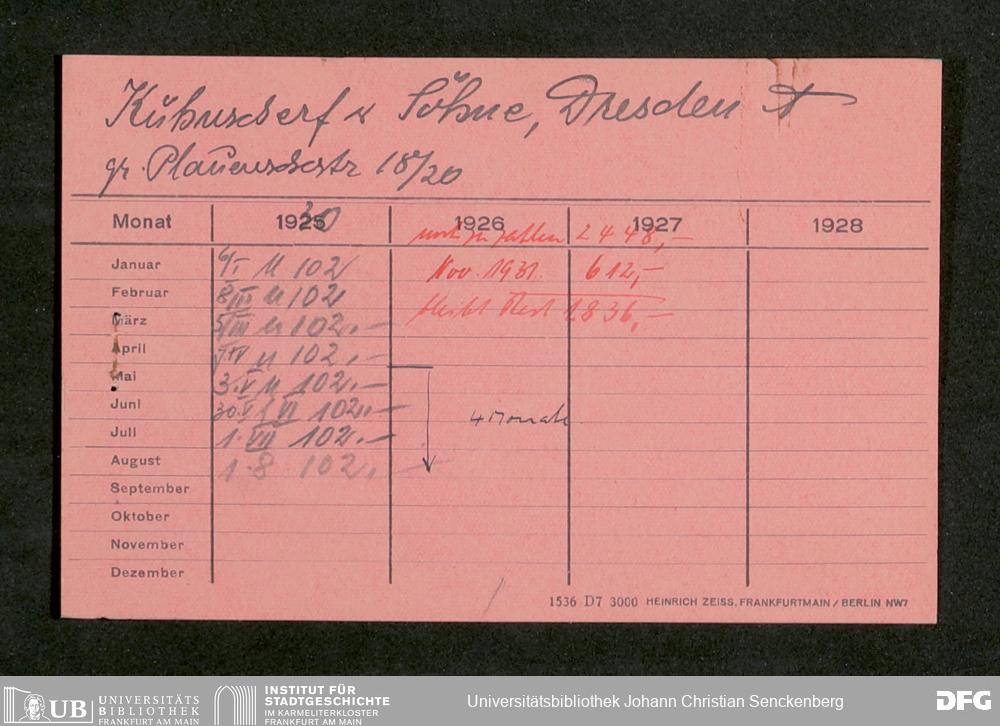 Kühnscherf u Söhne, Dresden A
gr. Plauenschestr 18/20
Monat 1925 30 1926 1927 1928
noch zu zahlen 2448,-
Januar 6/I M 102 Nov. 1931. 612,-
Februar 3/III M 102
bleibt Rest 1836,-
März 5/III M 102.-
April 7/IV M 102.-
Mai 3.V M 102.-
Juni 30.V f VI 102.-
4 Monate
Juli 1. VII 102.-
August 1.8 102.-
September
Oktober
November
Dezember
1536 D7 3000 HEINRICH ZEISS, FRANKFURTMAIN / BERLIN NW7
UB UNIVERSITÄTS
BIBLIOTHEK
FRANKFURT AM MAIN
INSTITUT FÜR
STADTGESCHICHTE
IM KARMELITERKLOSTER
FRANKFURT AM MAIN
Universitätsbibliothek Johann Christian Senckenberg
DFG